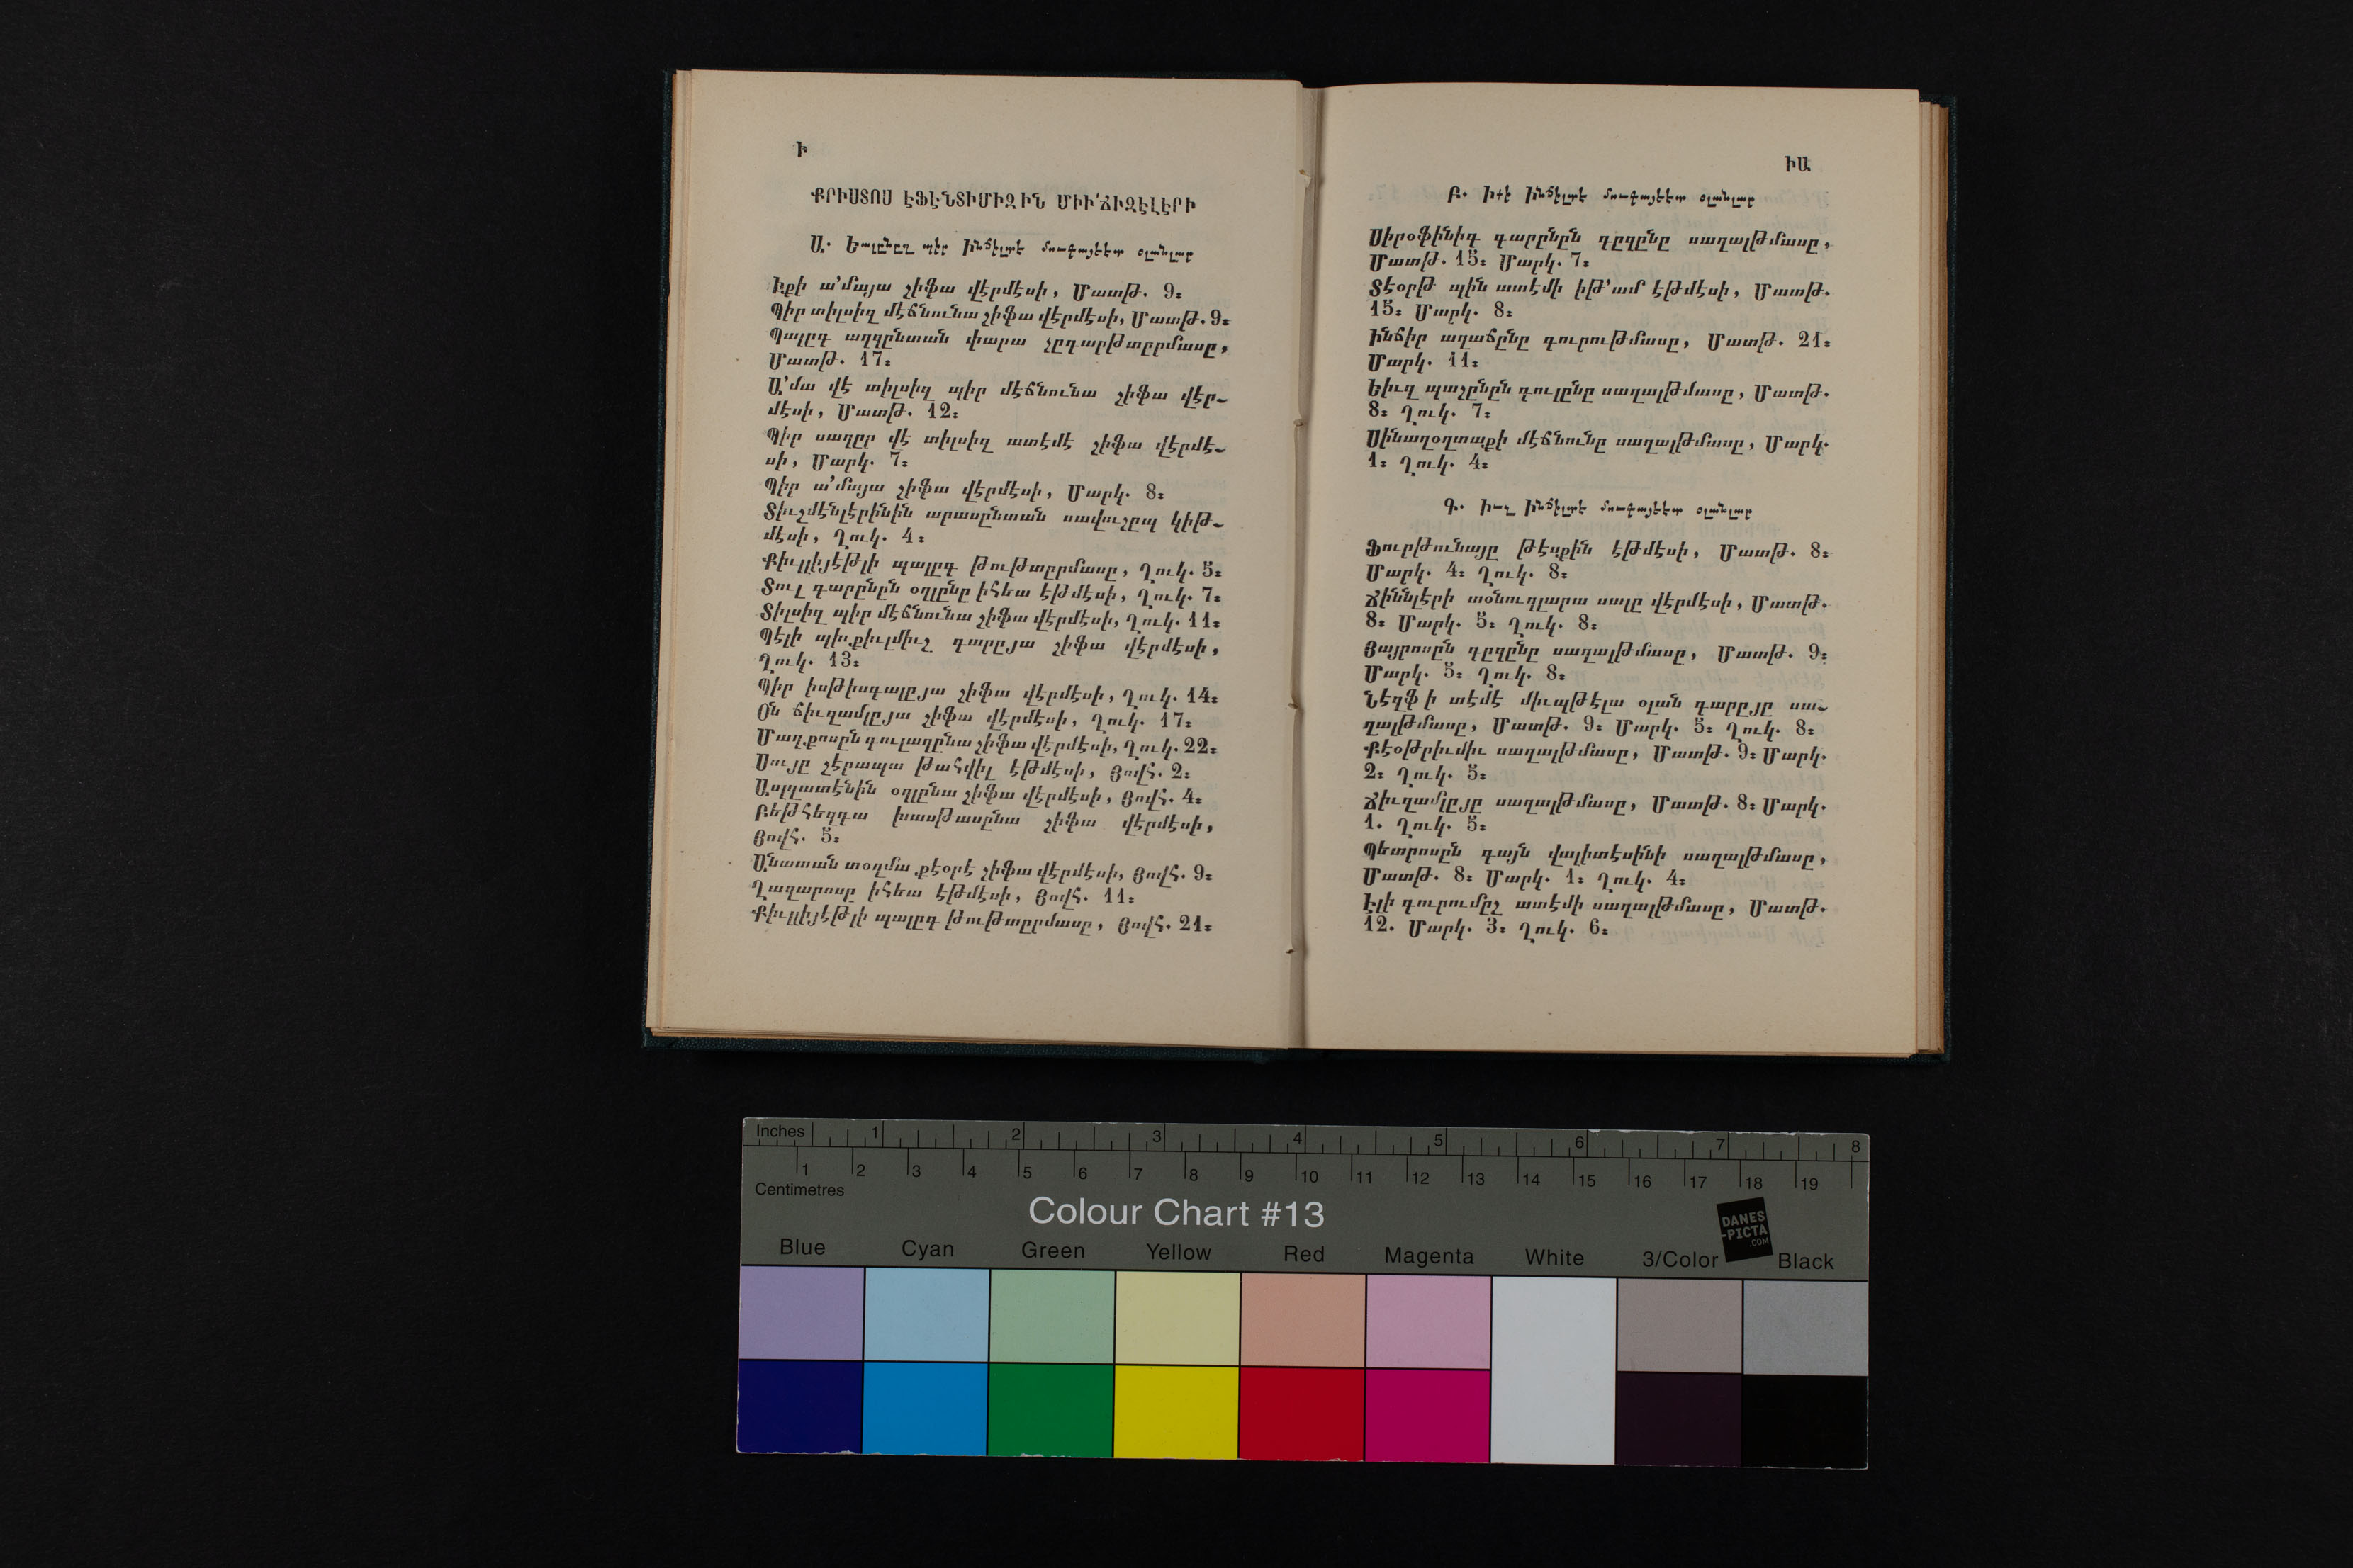 Ի
ՔՐԻՍՏՈՍ ԷՖԷՆՏԻՄԻԶԻՆ ՄԻՒ՚ՃԻԶԷԼԷՐԻ
Ա. Եալընըզ պէր Ինճիլտէ մունտայեետ օլանլար
Իքի ա՚մայա շիֆա վէրմէսի, Մատթ. 9։
Պիր տիլսիզ մէճնունա շիֆա վէրմէսի, Մատթ. 9։
Պալըգ աղզընտան փարա չըգարթտըրմասը,
Մատթ. 17։
Ա՚մա վէ տիլսիզ պիր մէճնունա շիֆա վէր֊
մէսի, Մատթ. 12։
Պիր սաղըր վէ տիլսիզ ատէմէ շիֆա վէրմէ֊
սի, Մարկ. 7։
Պիր ա՚մայա շիֆա վէրմէսի, Մարկ. 8։
Տիւշմէնլէրինին արասընտան սավուշըպ կիթ֊
մէսի, Ղուկ. 4։
Քիւլլիյէթլի պալըգ թութտըրմասը, Ղուկ. 5։
Տուլ գարընըն օղլընը իհեա էթմէսի, Ղուկ. 7։
Տիլսիզ պիր մէճնունա շիֆա վէրմէսի, Ղուկ. 11։
Պէլի պիւքիւլմիւշ գարըյա շիֆա վէրմէսի,
Ղուկ. 13։
Պիր իսթիսգալըյա շիֆա վէրմէսի, Ղուկ. 14։
Օն ճիւզամլըյա շիֆա վէրմէսի, Ղուկ. 17։
Մաղքոսըն գուլաղընա շիֆա վէրմէսի, Ղուկ. 22։
Սույը շէրապա թահվիլ էթմէսի, Յովհ. 2։
Ասլզատէնին օղլընա շիֆա վէրմէսի, Յովհ. 4։
Բեթհեզդա խասթասընա շիֆա վէրմէսի,
Յովհ. 5։
Անատան տօղմա քէօրէ շիֆա վէրմէսի, Յովհ. 9։
Ղազարոսը իհեա էթմէսի, Յովհ. 11։
Քիւլլիյէթլի պալըգ թութտըրմասը, Յովհ. 21։
ԻԱ
Բ. Իքի Ինճիլտէ մունտայեետ օլանլար
Սիրօֆինիգ գարընըն գըզընը սաղալթմասը,
Մատթ. 15։ Մարկ. 7։
Տէօրթ պին ատէմի իթ՚ամ էթմէսի, Մատթ.
15։ Մարկ. 8։
Ինճիր աղաճընը գուրութմասը, Մատթ. 21։
Մարկ. 11։
Եիւզ պաշընըն գուլընը սաղալթմասը, Մատթ.
8։ Ղուկ. 7։
Սինաղօղտաքի մէճնունը սաղալթմասը, Մարկ.
1։ Ղուկ. 4։
Գ. Իւչ Ինճիլտէ մունտայեետ օլանլար
Ֆուրթունայը թէսքին էթմէսի, Մատթ. 8։
Մարկ. 4։ Ղուկ. 8։
Ճիննլէրի տօնուզլարա սալը վէրմէսի, Մատթ.
8։ Մարկ. 5։ Ղուկ. 8։
Յայրոսըն գըզընը սաղալթմասը, Մատթ. 9։
Մարկ. 5։ Ղուկ. 8։
Նէզֆ ի տէմէ միւպթէլա օլան գարըյը սա֊
ղալթմասը, Մատթ. 9։ Մարկ. 5։ Ղուկ. 8։
Քէօթրիւմիւ սաղալթմասը, Մատթ. 9։ Մարկ.
2։ Ղուկ. 5։
Ճիւզամլըյը սաղալթմասը, Մատթ. 8։ Մարկ.
1. Ղուկ. 5։
Պետրոսըն գայն վալիտէսինի սաղալթմասը,
Մատթ. 8։ Մարկ. 1։ Ղուկ. 4։
Էլի գուրումըշ ատէմի սաղալթմասը, Մատթ.
12. Մարկ. 3։ Ղուկ. 6։
Inches 1 2 3 4 5 6 7 8
1 2 3 4 5 6 7 8 9 10 11 12 13 14 15 16 17 18 19
Centimetres
Colour Chart #13
DANES
-PICTA
.COM
Blue Cyan Green Yellow Red Magenta White 3/Color Black